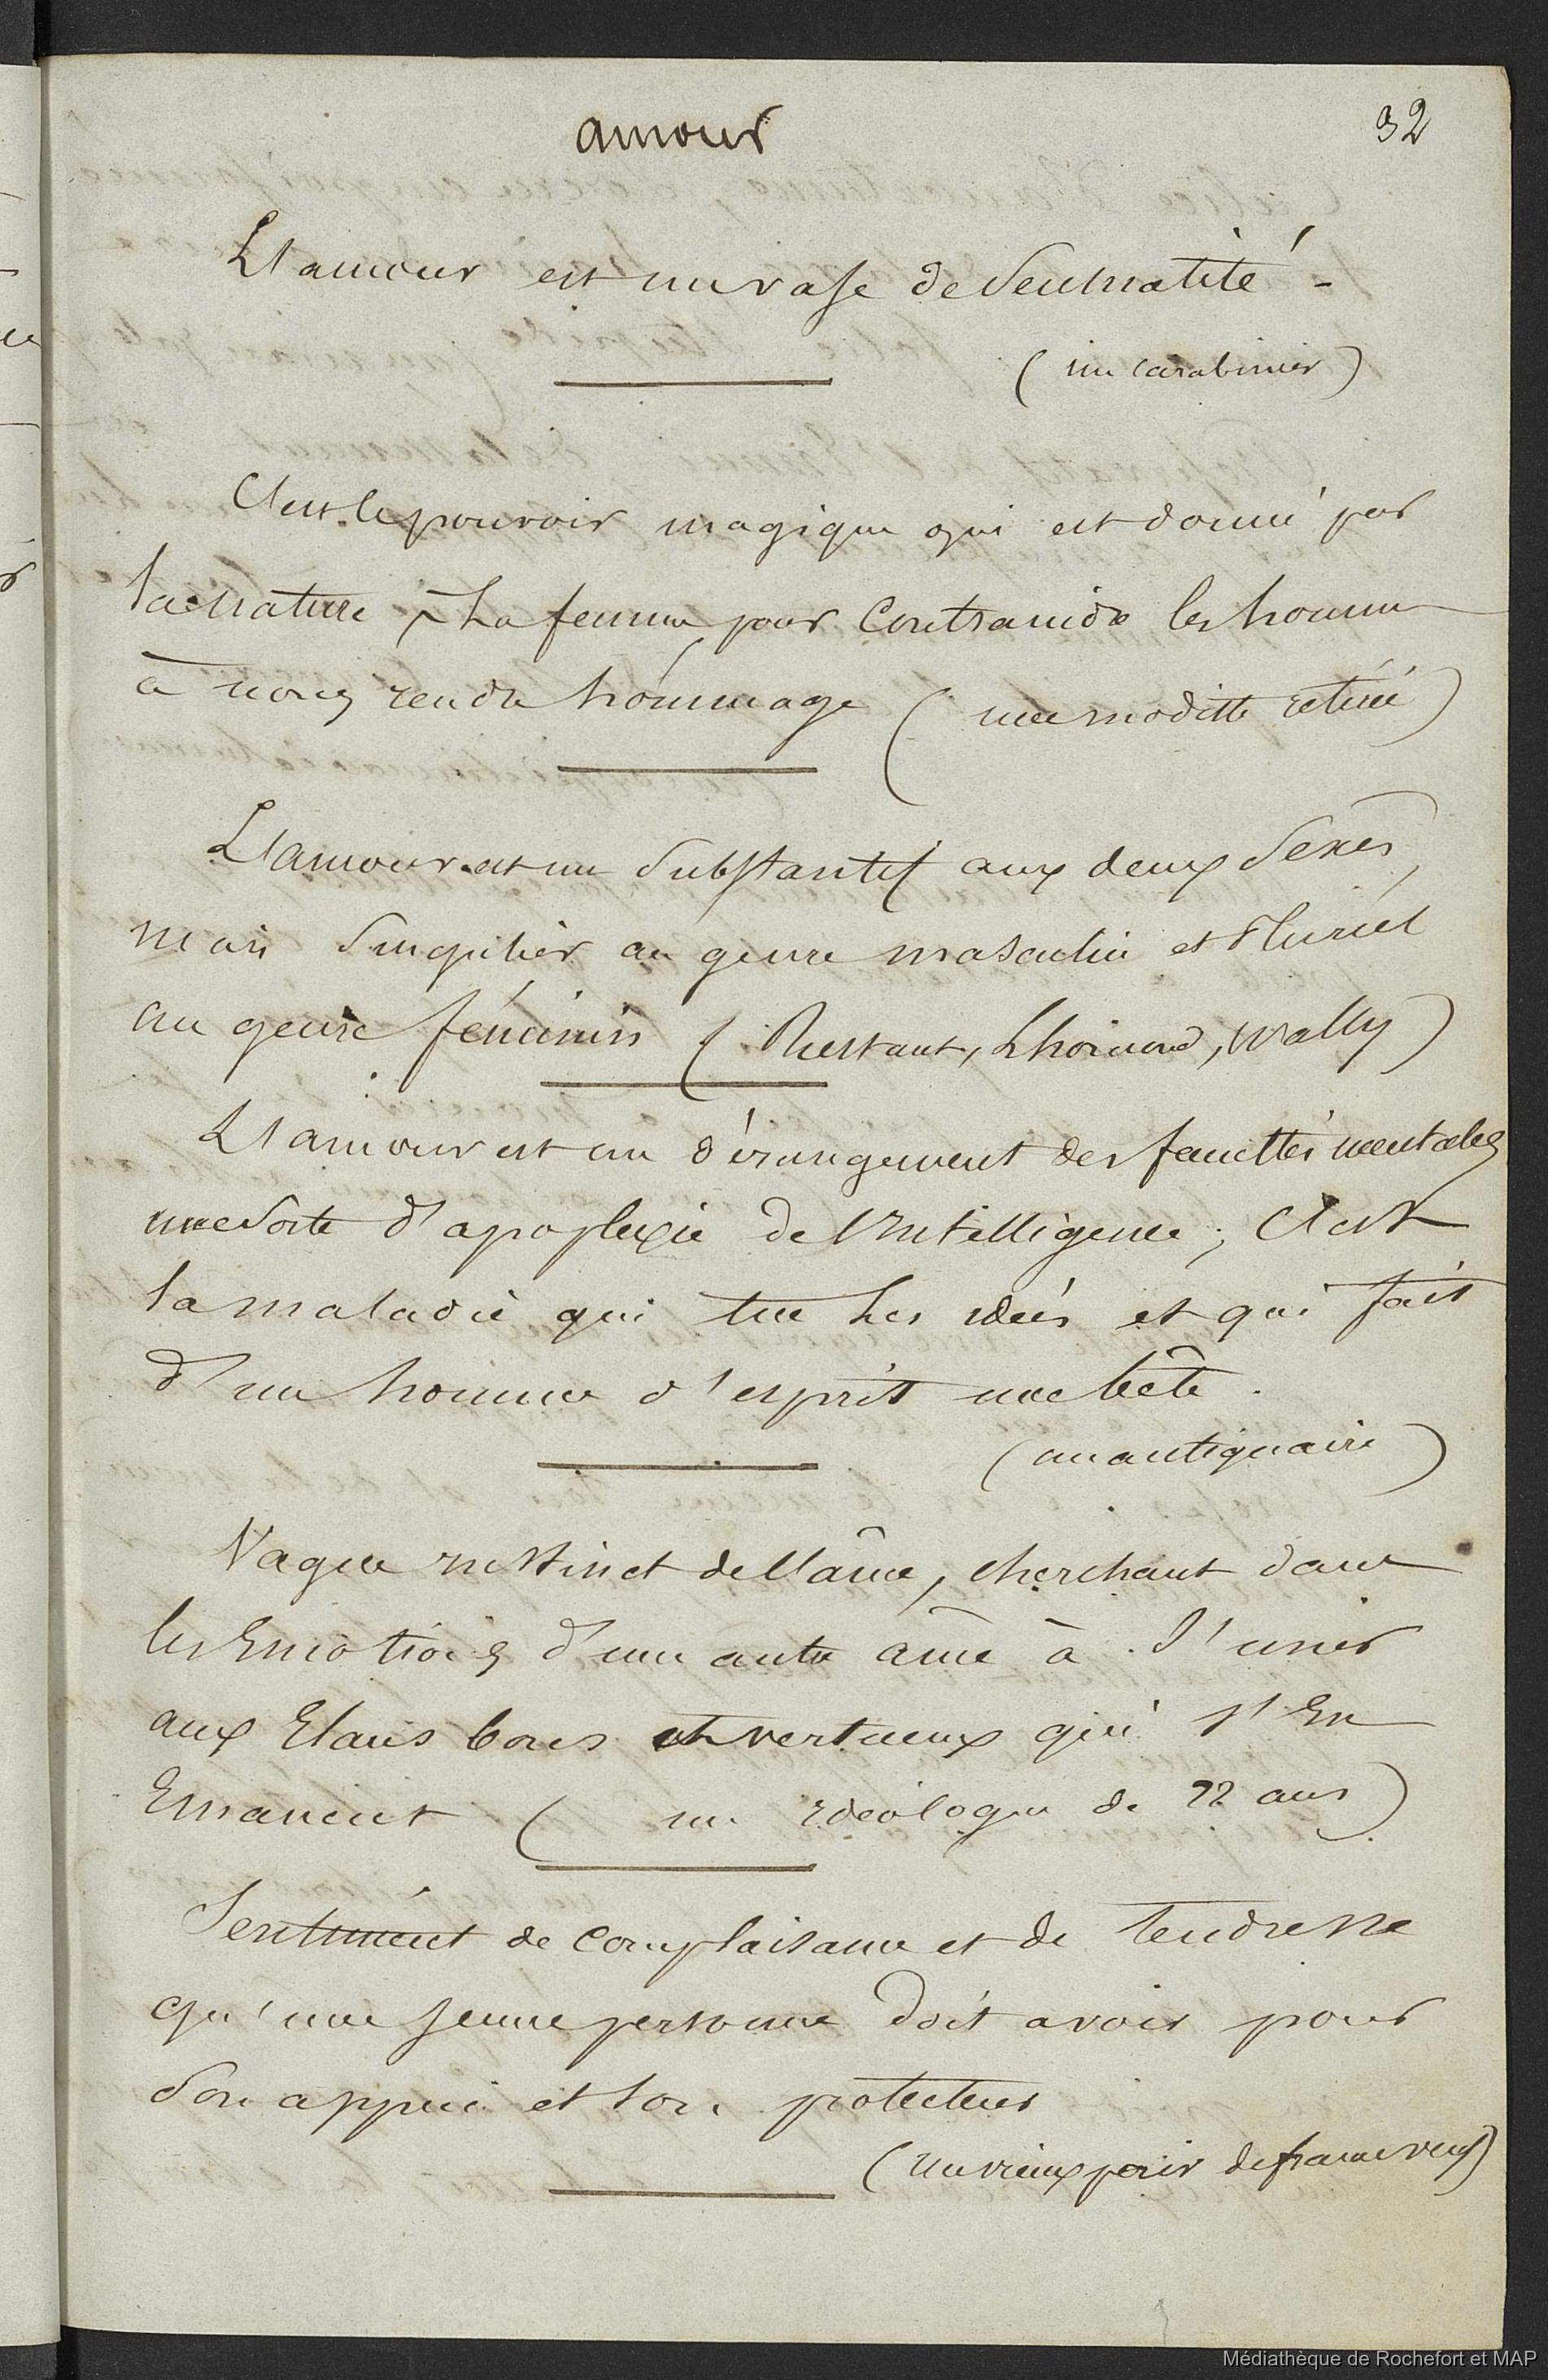 amour
32
L'amour est un vase de sensualité -
(un carabinier)
C'est le pouvoir magique qui est donné par
la nature à la femme pour contraindre les hommes
à nous rendre hommage (une modiste retirée)
L'amour est un substantif aux deux sexes,
mais singulier au genre masculin et pluriel
au genre féminin (Restaut, Lhomond, Wailly)
L'amour est un dérangement des facultés mentales
une sorte d'apoplexie de l'intelligence ; c'est
la maladie qui tue les idées et qui fait
d'un homme d'esprit une bête.
(un antiquaire)
Vague instinct de l'âme, cherchant dans
les Emotions d'une autre âme à s'unir
aux Elans bons et vertueux qui s'En
Emanent ( un idéologue de 22 ans)
Sentiment de complaisance et de tendresse
qu'une jeune personne doit avoir pour
son appui et son protecteur
(un vieux pair de france veuf)
Médiathèque de Rochefort et MAP